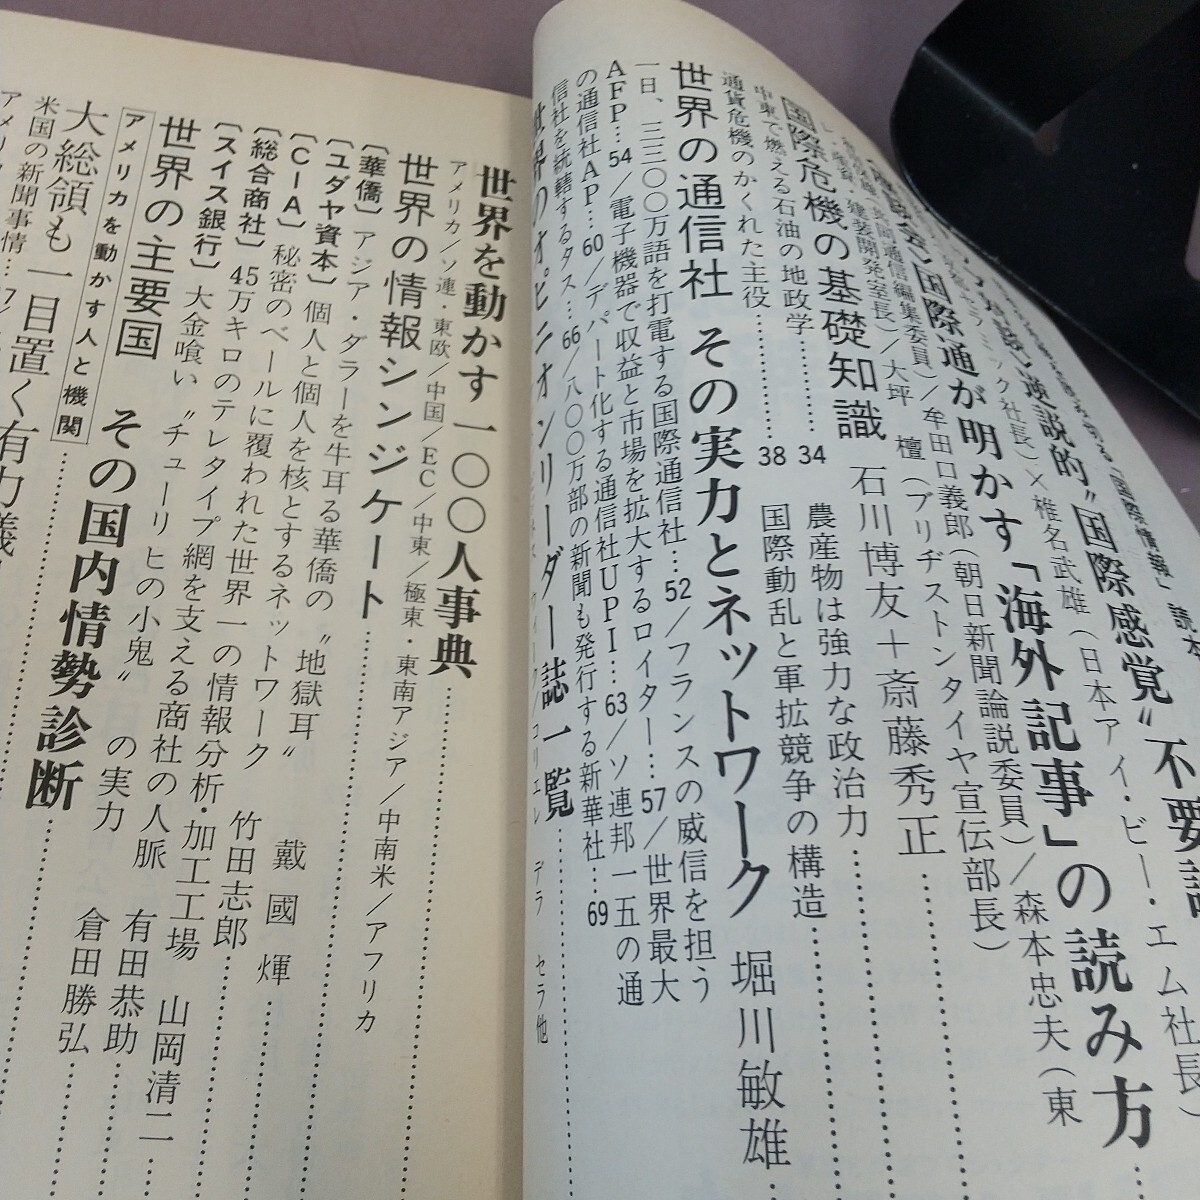 「国際情報」読本
逆説的〝国際感覚〟不要
社長)×椎名武雄(日本アイ・ビー・エム社長)
国際通が明かす「海外記事」の読み方
通信編集委員)/牟田口義郎(朝日新聞論説委員)/森本忠夫(東
建装開発室長)/大坪 檀(ブリヂストンタイヤ宣伝部長)
国際危機の基礎知識 石川博友＋斎藤秀正
中東で燃える石油の地政学……34 農産物は強力な政治力
通貨危機のかくれた主役……38 国際動乱と軍拡競争の構造
世界の通信社 その実力とネットワーク 堀川敏雄
一日、三三〇〇万語を打電する国際通信社…52/フランスの威信を担う
AFP…54/電子機器で収益と市場を拡大するロイター…57/世界最大
の通信社AP…60/デパート化する通信社UPI…63/ソ連邦一五の通
信社を統轄するタス…66/八〇〇万部の新聞も発行する新華社…69
世界のオピニオンリーダー誌一覧
コリエレ デラ セラ他
世界を動かす一〇〇人事典
アメリカ/ソ連・東欧/中国/EC/中東/極東・東南アジア/中南米/アフリカ
世界の情報シンジケート
〔華僑〕アジア・ダラーを牛耳る華僑の〝地獄耳〟 戴國煇
〔ユダヤ資本〕個人と個人を核とするネットワーク 竹田志郎
〔CIA〕秘密のベールに覆われた世界一の情報分析・加工工場 山岡清二
〔総合商社〕45万キロのテレタイプ網を支える商社の人脈 有田恭助
〔スイス銀行〕大金喰い〝チューリヒの小鬼〟の実力 倉田勝弘
世界の主要国 その国内情勢診断
アメリカを動かす人と機関
大総領も一目置く有力議
米国の新聞事情…